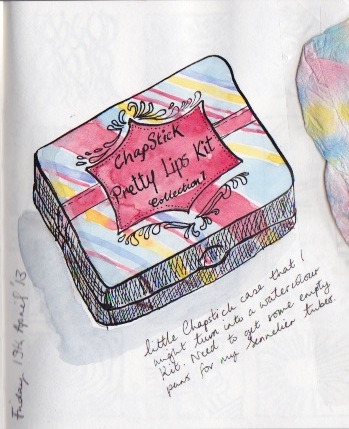 ChapStick
Pretty Lips Kit
Collection!
little Chapstick case that I
might turn into a watercolour
kit. Need to get some empty
pans for my Sennelier tubes.
Friday 13th April '13